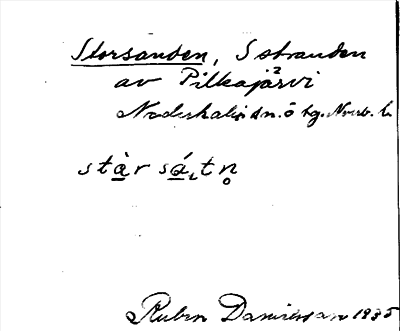 Storsanden, S stranden
av Pitkajärvi
Nederkalix sn. ö hg. Nrrb. l.
stàr sá.tn̥
Ruben Danielsson 1935